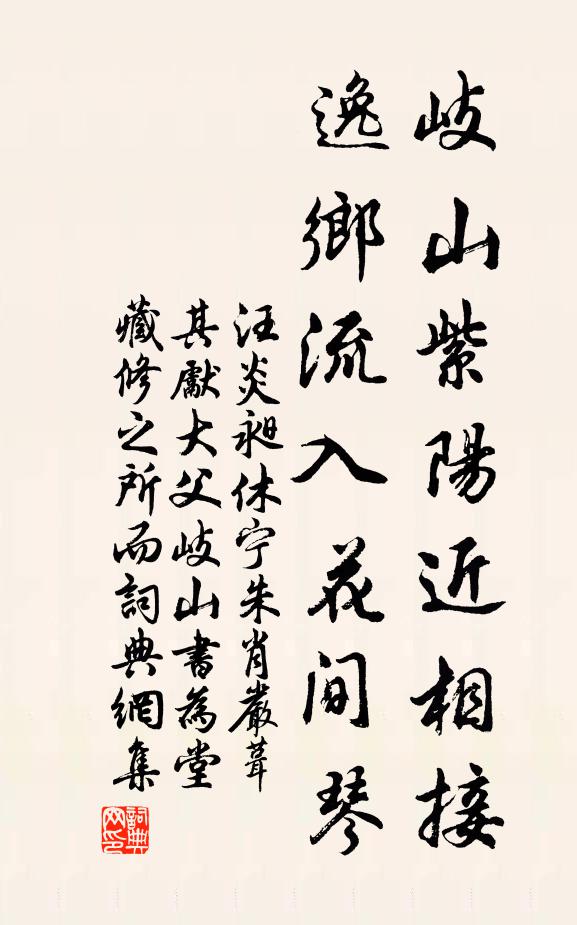 岐山紫陽近相接
逸鄉流入花間琴
汪炎昶休宁朱肖巖葺
其獻大父岐山書為堂
藏修之所而詞典網集
詞典网印